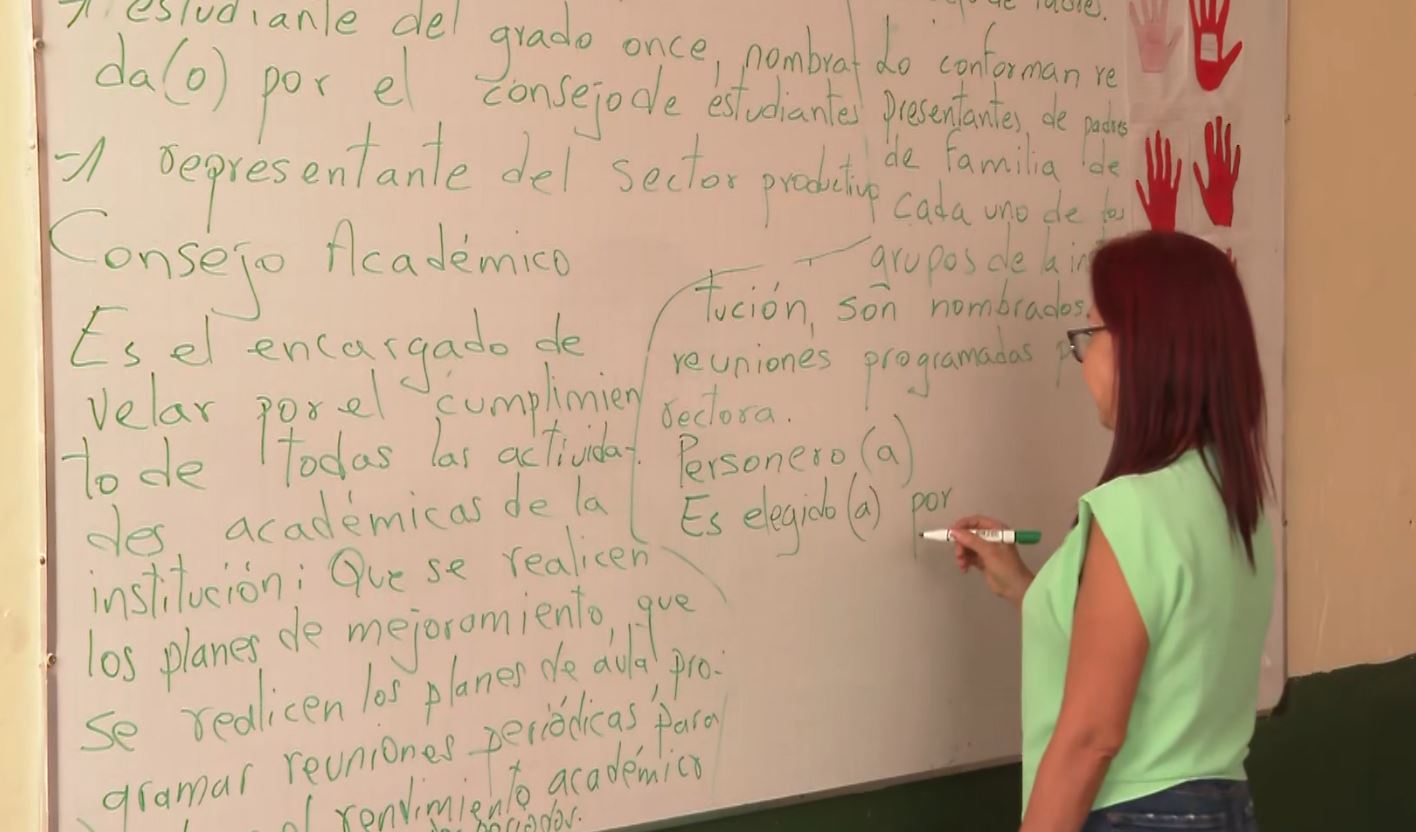 1 estudiante del grado once, nombra
da(o) por el consejo de estudiantes
-1 representante del sector productivo
Consejo Académico
Es el encargado de
velar por el cumplimien
to de todas las activida-
des académicas de la
institución: Que se realicen
los planes de mejoramiento, que
se realicen los planes de aula, pro-
gramar reuniones periódicas para
el rendimiento académico
Lo conforman re
presentantes de padres
de familia de
cada uno de los
grupos de la ins
tución, son nombrados
reuniones programadas
rectora.
Personero (a)
Es elegido (a) por